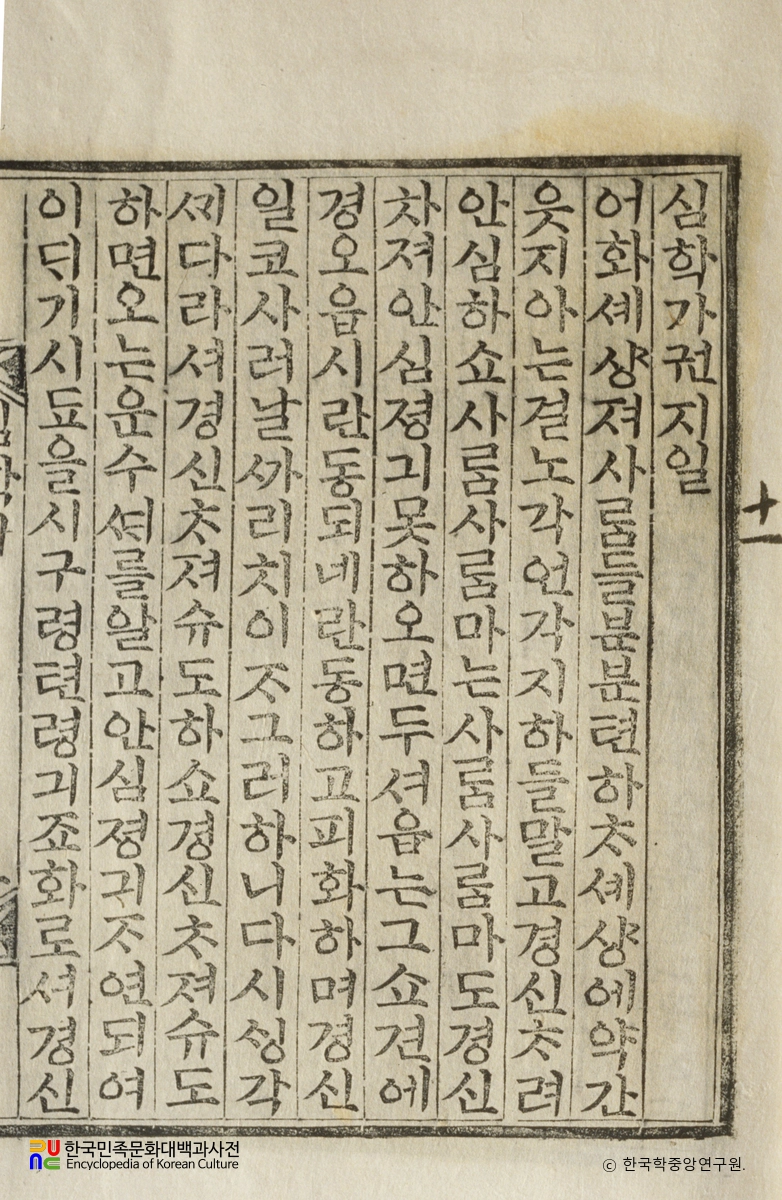 심학가권지일
어화셰샹져사ᄅᆞᆷ들분분텬하ᄎᆞ셰샹에약간
웃지아는결노각언각지하들말고경신ᄎᆞ려
안심하쇼사ᄅᆞᆷ사ᄅᆞᆷ마는사ᄅᆞᆷ사ᄅᆞᆷ마도경신
차져안심졍긔못하오면두셔읍는그쇼견에
경오읍시란동되네란동하고피화하며경신
일코사러날ᄭᅡ리치이ᄌᆞ그러하니다시ᄉᆡᆼ각
ᄭᅢ다라셔경신ᄎᆞ져슈도하쇼경신ᄎᆞ져슈도
하면오는운수ᄯᅢ를알고안심졍긔ᄌᆞ연되여
이ᄃᆡ기시됴을시구령텬령긔죠화로셔경신
十一
한국민족문화대백과사전
Encyclopedia of Korean Culture
ⓒ 한국학중앙연구원.